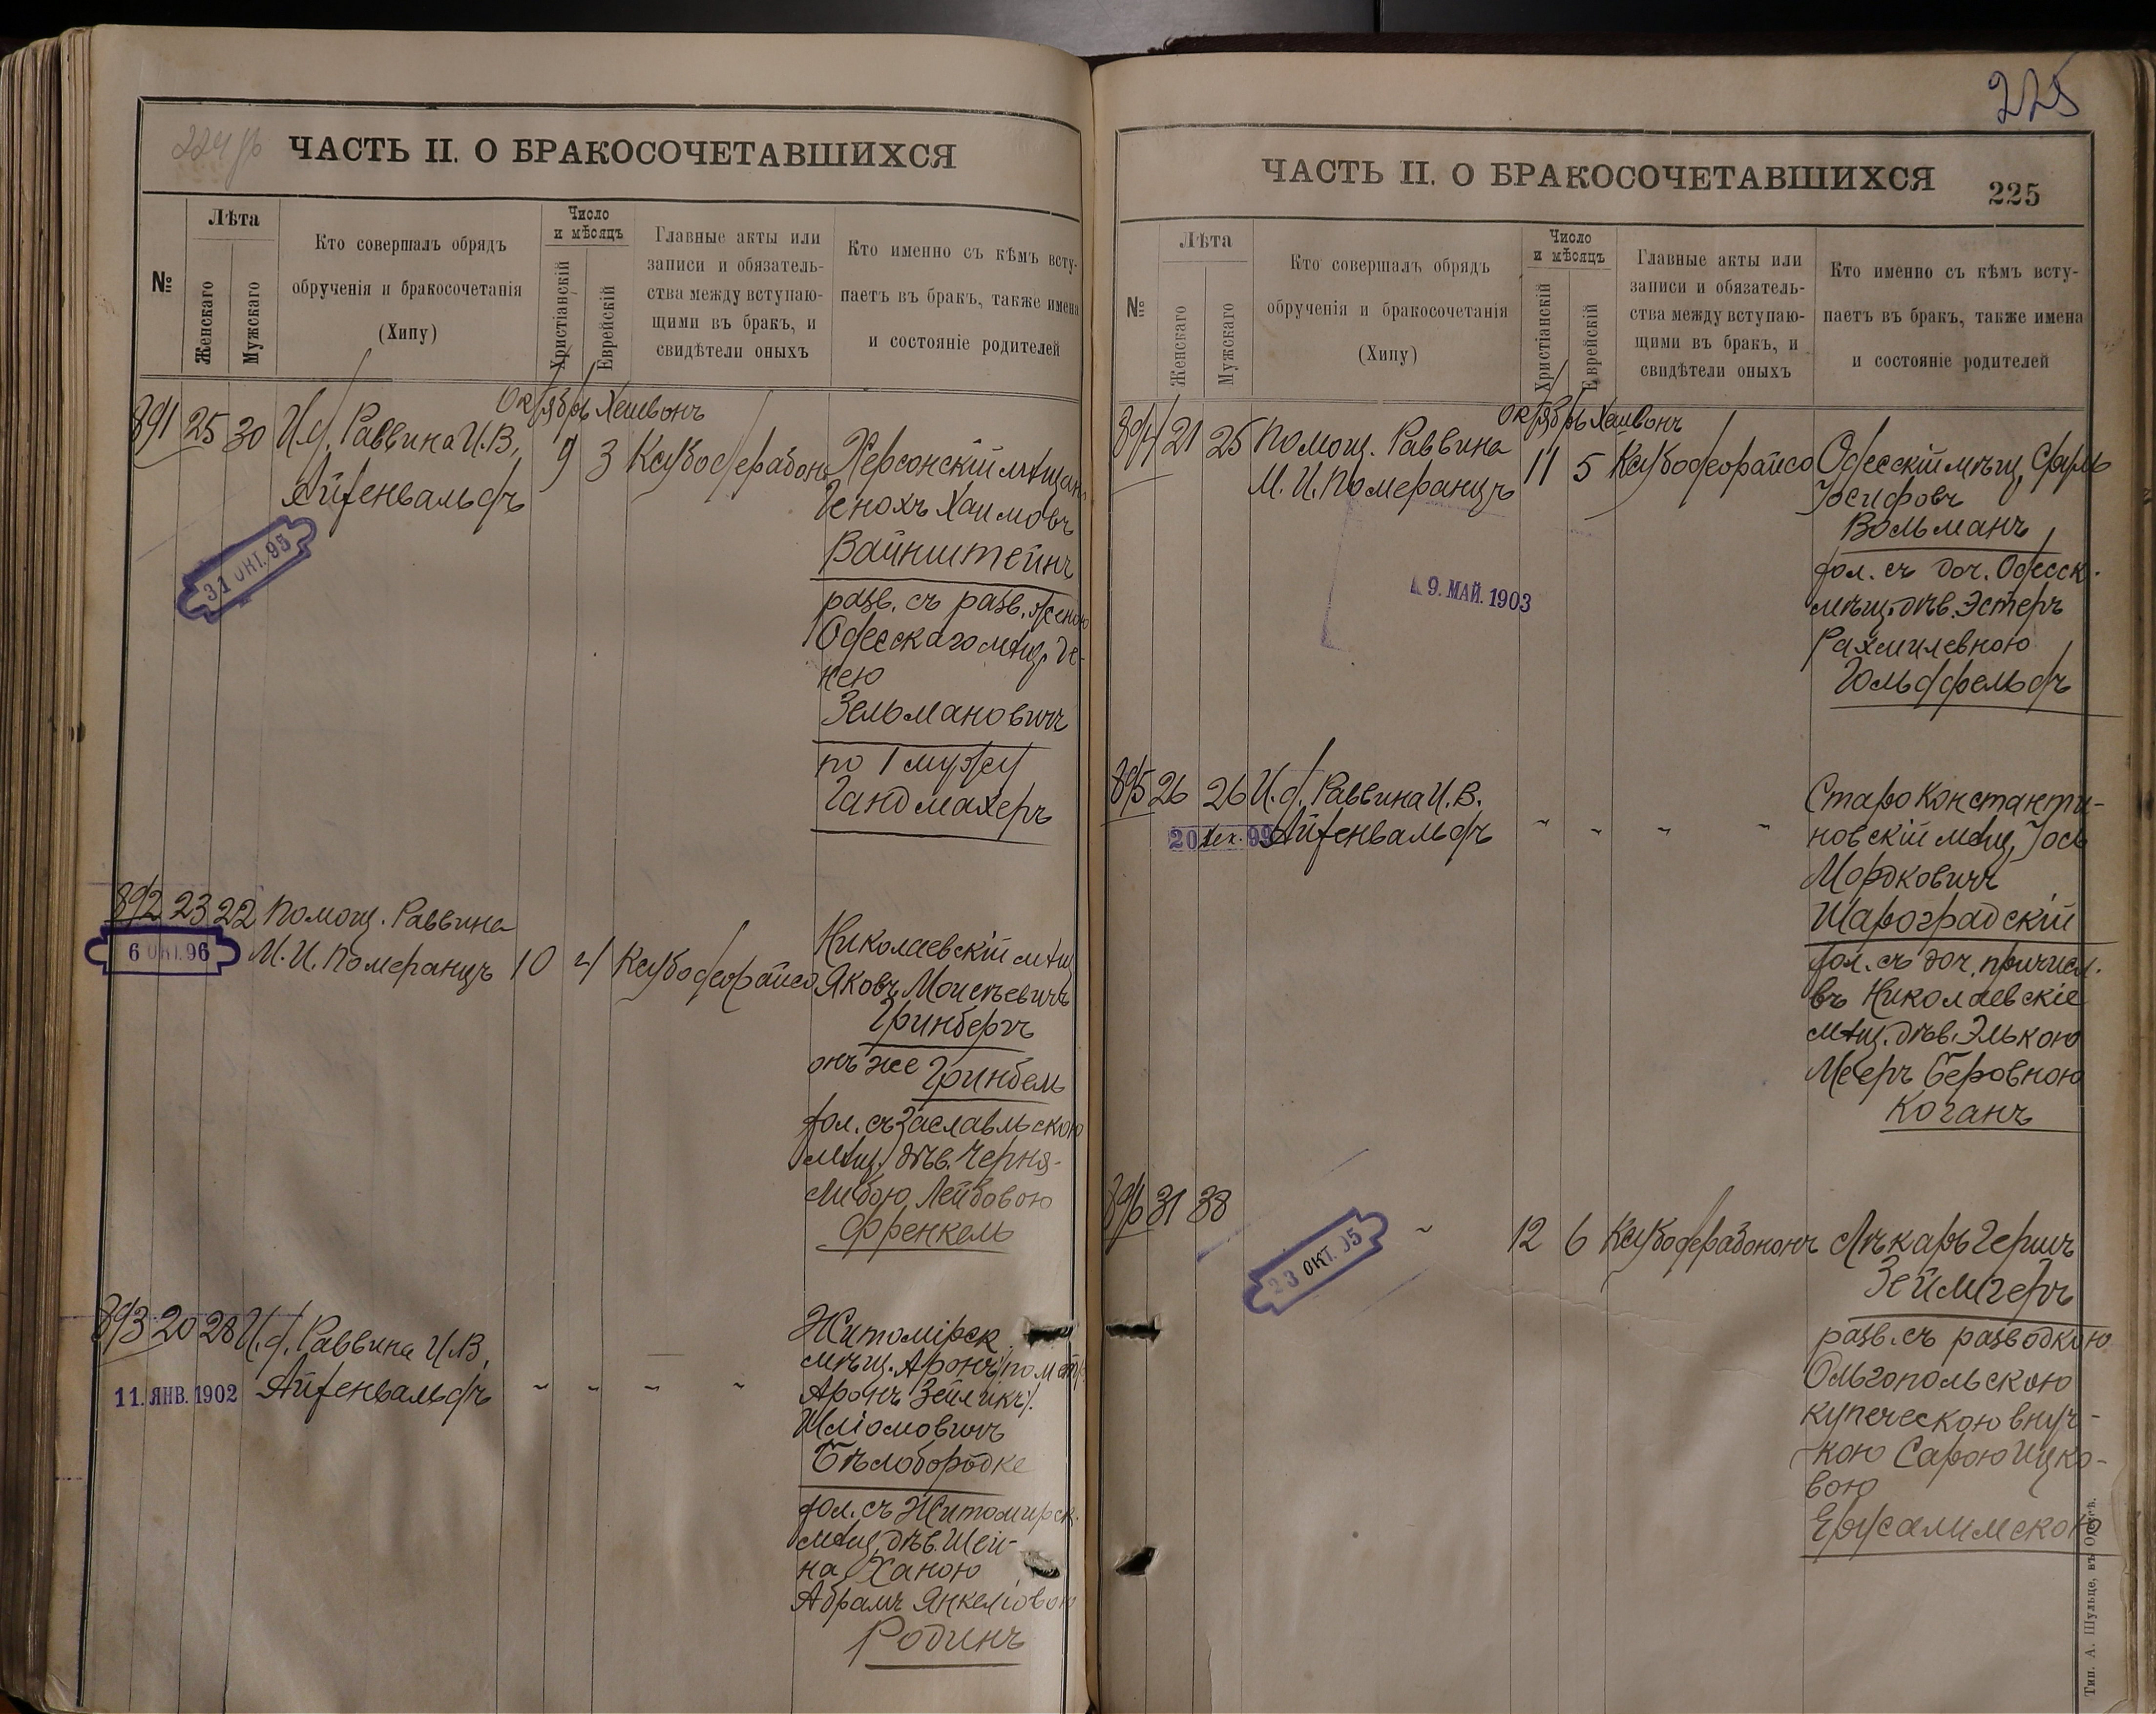 224 об
ЧАСТЬ II. О БРАКОСОЧЕТАВШИХСЯ
№
Лѣта
Женскаго
Мужскаго
Кто совершалъ обрядъ
обрученія и бракосочетанія
(Хипу)
Число
и мѣсяцъ
Христіанскій
Еврейскій
Главные акты или
записи и обязатель-
ства между вступаю-
щими въ бракъ, и
свидѣтели оныхъ
Кто именно съ кѣмъ всту-
паетъ въ бракъ, также имена
и состояніе родителей
Октябрь Хешвонъ
891 25 30 И.д. Раввина И.В. 9 3
Айзенвальдъ
31 ОКТ. 95
Херсонскій мѣщан.
Генохъ Хаимовъ
Вайнштейнъ
разв. съ разв. женою
Одесскаго мѣщ. Ге-
нею
Зельмановичъ
по 1 мужу
Гандмахеръ
892 23 22 Помощ. Раввина
6 ОКТ. 96
М. И. Померанцъ 10 4
Николаевскій мѣщ
Яковъ Моисѣевичъ
Гринбергъ
онъ же Гринбель
хол. съ Заславльскою
мѣщ. дѣв. Черня-
Либою Лейбовою
Френкель
893 20 28 И.д. Раввина И.В.
11. ЯНВ. 1902
Айзенвальдъ " " " "
Житомірск.
мѣщ. Аронъ (по метр.
Аронъ Зейликъ).
Шліомовичъ
Бѣлобородке
хол. съ Житомирск.
мѣщ. дѣв. Шей-
на Ханою
Абрамъ Янкеліовою
Родинъ
225
ЧАСТЬ II. О БРАКОСОЧЕТАВШИХСЯ
225
№
Лѣта
Женскаго
Мужскаго
Кто совершалъ обрядъ
обрученія и бракосочетанія
(Хипу)
Число
и мѣсяцъ
Христіанскій
Еврейскій
Главные акты или
записи и обязатель-
ства между вступаю-
щими въ бракъ, и
свидѣтели оныхъ
Кто именно съ кѣмъ всту-
паетъ въ бракъ, также имена
и состояніе родителей
Октябрь Хешвонъ
894 21 25 Помощ. Раввина
М. И. Померанцъ 11 5
9. МАЙ. 1903
Одесскій мѣщ.
Іосифовъ
Вольманъ
хол. съ доч. Одесск.
мѣщ. дѣв. Эстеръ
Рахмилевною
Гольдфельдъ
895 26 26 И.д. Раввина И.В.
20 Дек. 99
Айзенвальдъ " " " "
Староконстанти-
новскій мѣщ. Іось
Мордковичъ
Шароградскій
хол. съ доч. причисл.
въ Николаевскіе
мѣщ. дѣв. Элькою
Мееръ Беровною
Коганъ
896 31 38 " 12 6
23 ОКТ. 95
Лѣкарь Гершъ
Зейлигеръ
разв. съ разводкою
Ольгопольскою
купеческою внуч-
кою Сарою Ицко-
вою
Ерусалимскою
Тип. А. Шульце, въ Одессѣ.